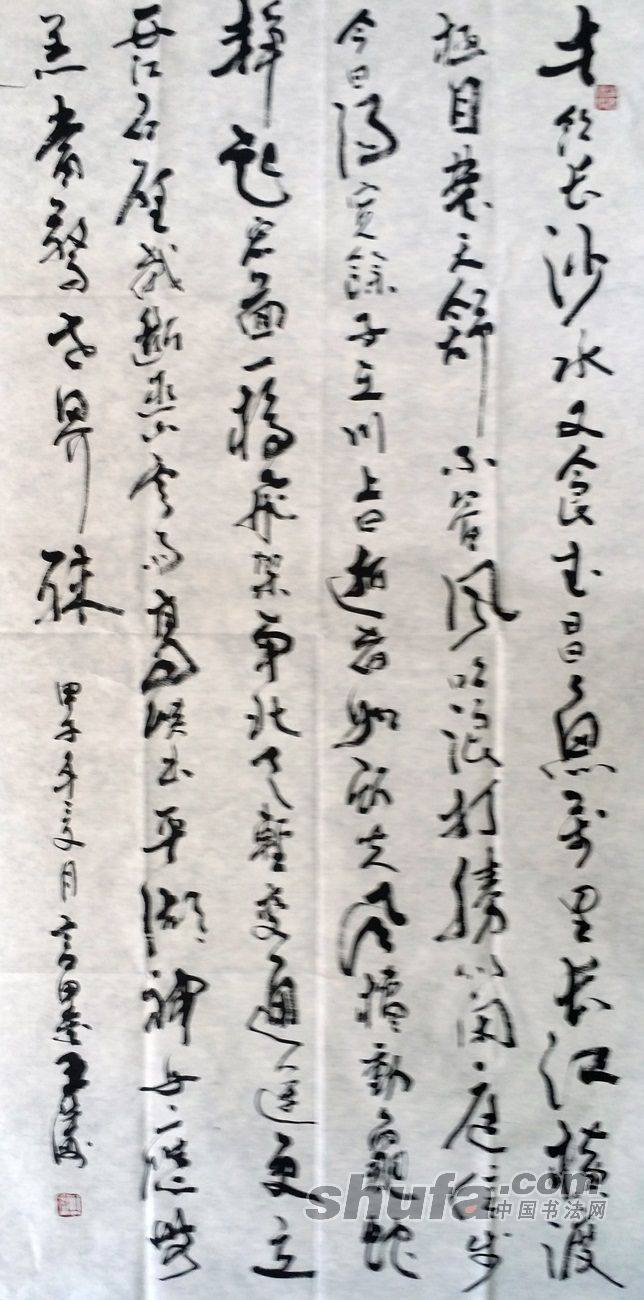 才饮长沙水又食武昌鱼万里长江横渡
极目楚天舒不管风吹浪打胜似闲庭信步
今日得宽餘子在川上曰逝者如斯夫风樯动龟蛇
静起宏图一桥飞架南北天堑变通途更立
西江石壁截断巫山云雨高峡出平湖神女应無
恙当惊世界殊
甲子年 月
shufa.com
中国书法网